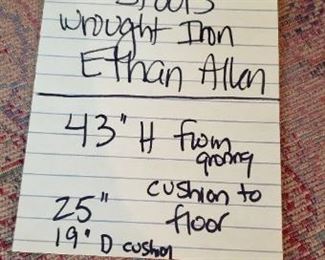 Wrought Iron
Ethan Allen
43" H from
cushion to
25" floor
19" D cushion